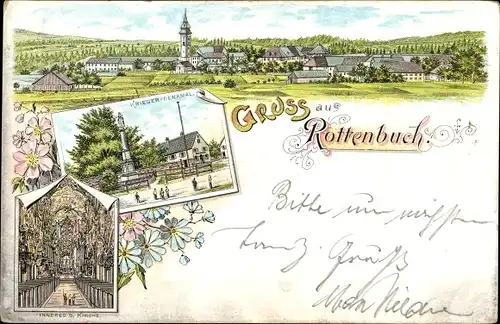 KRIEGER-DENKMAL.
Gruss aus
Rottenbuch.
Bitte um nächsten
Tanz. Gruß
INNERES D. KIRCHE.